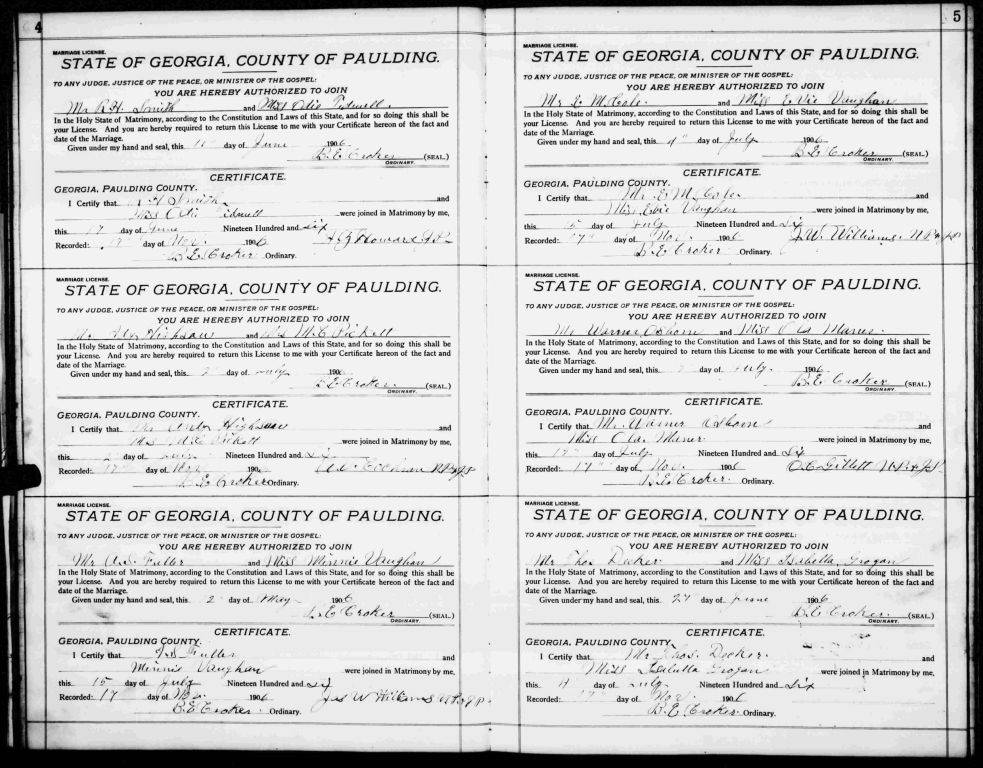 4
MARRIAGE LICENSE.
STATE OF GEORGIA, COUNTY OF PAULDING.
TO ANY JUDGE, JUSTICE OF THE PEACE, OR MINISTER OF THE GOSPEL:
YOU ARE HEREBY AUTHORIZED TO JOIN
Mr R.H. Smith and Miss Otie Tidwell
In the Holy State of Matrimony, according to the Constitution and Laws of this State, and for so doing this shall be
your License. And you are hereby required to return this License to me with your Certificate hereon of the fact and
date of the Marriage.
Given under my hand and seal, this day of June 1906
B.E. Croker (SEAL.)
ORDINARY.
CERTIFICATE.
GEORGIA, PAULDING COUNTY.
I Certify that R H Smith and
Miss Otie Tidwell were joined in Matrimony by me,
this 17 day of June Nineteen Hundred and six
Recorded: 17" day of Nov. 1906 Howard J.P.
B.E. Croker Ordinary.
MARRIAGE LICENSE.
STATE OF GEORGIA, COUNTY OF PAULDING.
TO ANY JUDGE, JUSTICE OF THE PEACE, OR MINISTER OF THE GOSPEL:
YOU ARE HEREBY AUTHORIZED TO JOIN
and M.E. Pickett
In the Holy State of Matrimony, according to the Constitution and Laws of this State, and for so doing this shall be
your License. And you are hereby required to return this License to me with your Certificate hereon of the fact and
date of the Marriage.
Given under my hand and seal, this 2 day of July 1906
B.E. Croker (SEAL)
ORDINARY.
CERTIFICATE.
GEORGIA, PAULDING COUNTY.
I Certify that and
Pickett were joined in Matrimony by me,
this day of Nineteen Hundred and six
Recorded: 17" day of Nov 190
B.E. Croker Ordinary.
MARRIAGE LICENSE.
STATE OF GEORGIA, COUNTY OF PAULDING.
TO ANY JUDGE, JUSTICE OF THE PEACE, OR MINISTER OF THE GOSPEL:
YOU ARE HEREBY AUTHORIZED TO JOIN
Mr A.S. Fuller and Miss Minnie Vaughan
In the Holy State of Matrimony, according to the Constitution and Laws of this State, and for so doing this shall be
your License. And you are hereby required to return this License to me with your Certificate hereon of the fact and
date of the Marriage.
Given under my hand and seal, this 2 day of May 1906
B.E. Croker (SEAL)
ORDINARY.
CERTIFICATE.
GEORGIA, PAULDING COUNTY.
I Certify that Fuller and
Minnie Vaughan were joined in Matrimony by me,
this 15 day of July Nineteen Hundred and six
Recorded: 17 day of Nov. 1906 Jas W Williams N.P. & J.P.
B.E. Croker Ordinary.
5
MARRIAGE LICENSE.
STATE OF GEORGIA, COUNTY OF PAULDING.
TO ANY JUDGE, JUSTICE OF THE PEACE, OR MINISTER OF THE GOSPEL:
YOU ARE HEREBY AUTHORIZED TO JOIN
Mr E McCole and Miss Evie Vaughan
In the Holy State of Matrimony, according to the Constitution and Laws of this State, and for so doing this shall be
your License. And you are hereby required to return this License to me with your Certificate hereon of the fact and
date of the Marriage.
Given under my hand and seal, this day of July 1906
B.E. Croker (SEAL)
ORDINARY.
CERTIFICATE.
GEORGIA, PAULDING COUNTY.
I Certify that Mr. E McCole and
Miss Evie Vaughan were joined in Matrimony by me,
this day of July Nineteen Hundred and Six
Recorded: 17" day of Nov. 1906 J.W. Williams N.P. & J.P.
B.E. Croker Ordinary.
MARRIAGE LICENSE.
STATE OF GEORGIA, COUNTY OF PAULDING.
TO ANY JUDGE, JUSTICE OF THE PEACE, OR MINISTER OF THE GOSPEL:
YOU ARE HEREBY AUTHORIZED TO JOIN
Mr Warner Osborn and Miss
In the Holy State of Matrimony, according to the Constitution and Laws of this State, and for so doing this shall be
your License. And you are hereby required to return this License to me with your Certificate hereon of the fact and
date of the Marriage.
Given under my hand and seal, this day of July. 1906
B.E. Croker (SEAL)
ORDINARY.
CERTIFICATE.
GEORGIA, PAULDING COUNTY.
I Certify that Mr. Warner Osborn and
Miss were joined in Matrimony by me,
this day of July Nineteen Hundred and Six
Recorded: 17" day of Nov. 1906 Gillett N.P. & J.P.
B.E. Croker Ordinary.
MARRIAGE LICENSE.
STATE OF GEORGIA, COUNTY OF PAULDING.
TO ANY JUDGE, JUSTICE OF THE PEACE, OR MINISTER OF THE GOSPEL:
YOU ARE HEREBY AUTHORIZED TO JOIN
Mr Thos Decker and Miss Grogan
In the Holy State of Matrimony, according to the Constitution and Laws of this State, and for so doing this shall be
your License. And you are hereby required to return this License to me with your Certificate hereon of the fact and
date of the Marriage.
Given under my hand and seal, this 27 day of June 1906
B.E. Croker (SEAL)
ORDINARY.
CERTIFICATE.
GEORGIA, PAULDING COUNTY.
I Certify that Mr Thos. Decker and
Miss Grogan were joined in Matrimony by me,
this 4 day of July Nineteen Hundred and Six
Recorded: 17 day of Nov. 1906
B.E. Croker Ordinary.